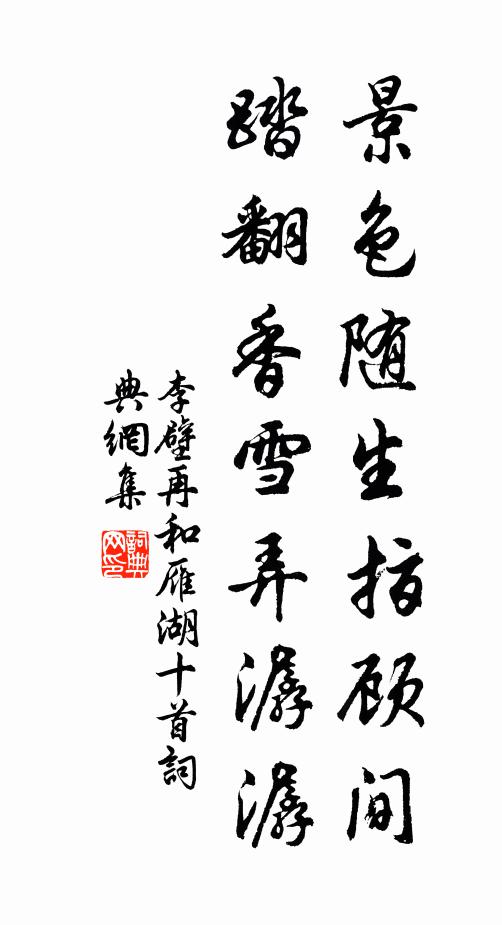 景色随生指顾间
踏翻香雪弄潺潺
李壁再和雁湖十首詞
典網集
詞典
网印